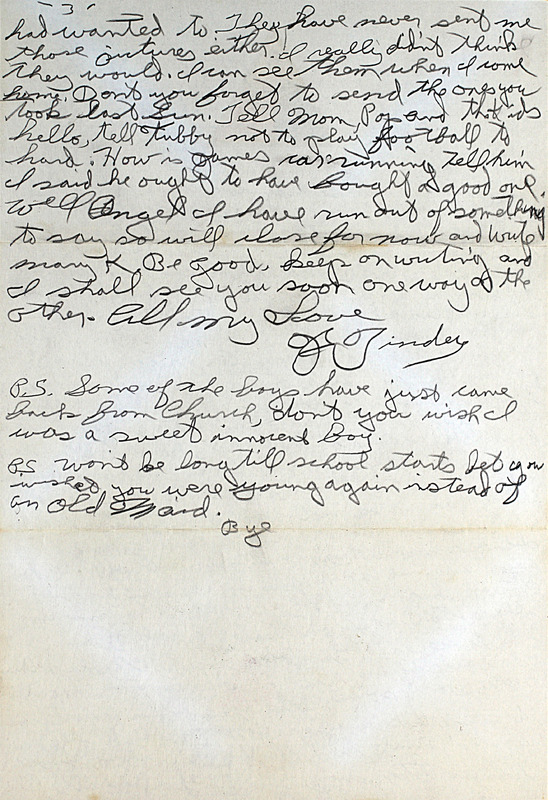 -3-
had wanted to. They have never sent me
those pictures either. I really didn't think
they would. I can see them when I come
home. Don't you forget to send the ones you
took last Sun. Tell Mom Pop and that ids
hello, tell Tubby not to play football to
hard. How is James car running tell him
I said he ought to have bought a good one.
Well Angel I have run out of something
to say so will close for now and write
mary K. Be good. Keep on writing and
I shall see you soon one way or the
other. All my Love
P.S. Some of the boys have just came
back from Church, don't you wish I
was a sweet innocent boy.
P.S. won't be long till school starts bet you
wished you were young again instead of
an Old Maid.
Bye